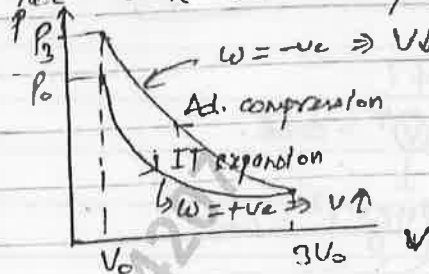 P
P₃
P₀
ω = -ve ⇒ V↓
Ad. compression
IT expansion
↳ ω = +ve ⇒ V↑
V₀
3V₀
V